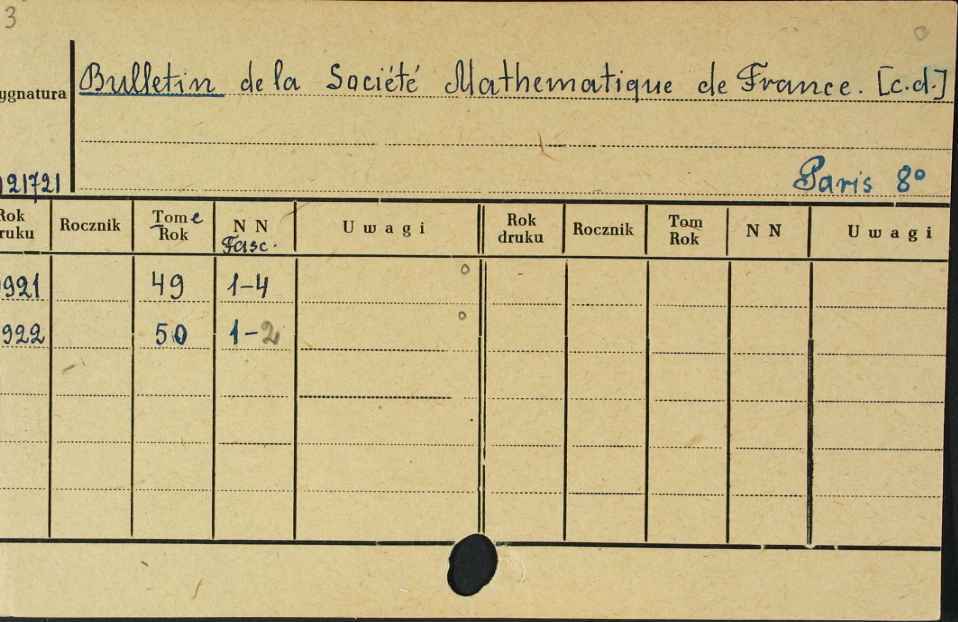 3
ygnatura Bulletin de la Société Mathematique de France. [c.d.]
121721 Paris 8°
Rok druku Rocznik Tome Rok NN Fasc. Uwagi Rok druku Rocznik Tom Rok NN Uwagi
921 49 1-4
922 50 1-2